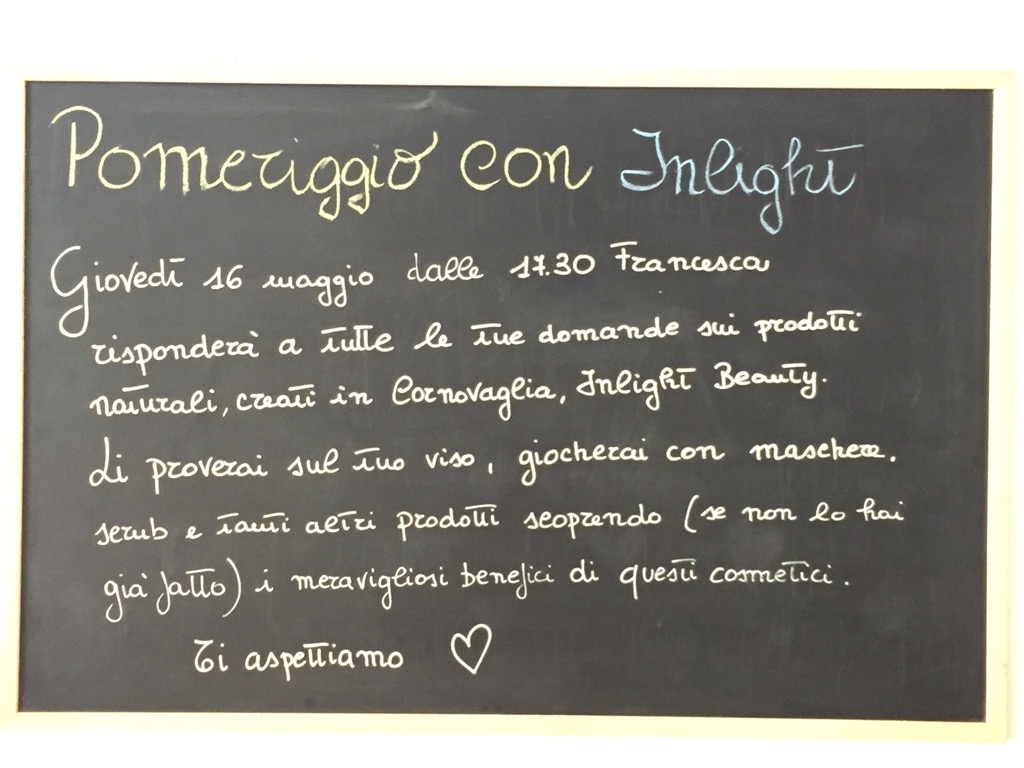 Pomeriggio con Inlight
Giovedì 16 maggio dalle 17.30 Francesca
risponderà a tutte le tue domande sui prodotti
naturali, creati in Cornovaglia, Inlight Beauty.
Li proverai sul tuo viso, giocherai con maschere.
scrub e tanti altri prodotti scoprendo (se non lo hai
già fatto) i meravigliosi benefici di questi cosmetici.
Ti aspettiamo ♡